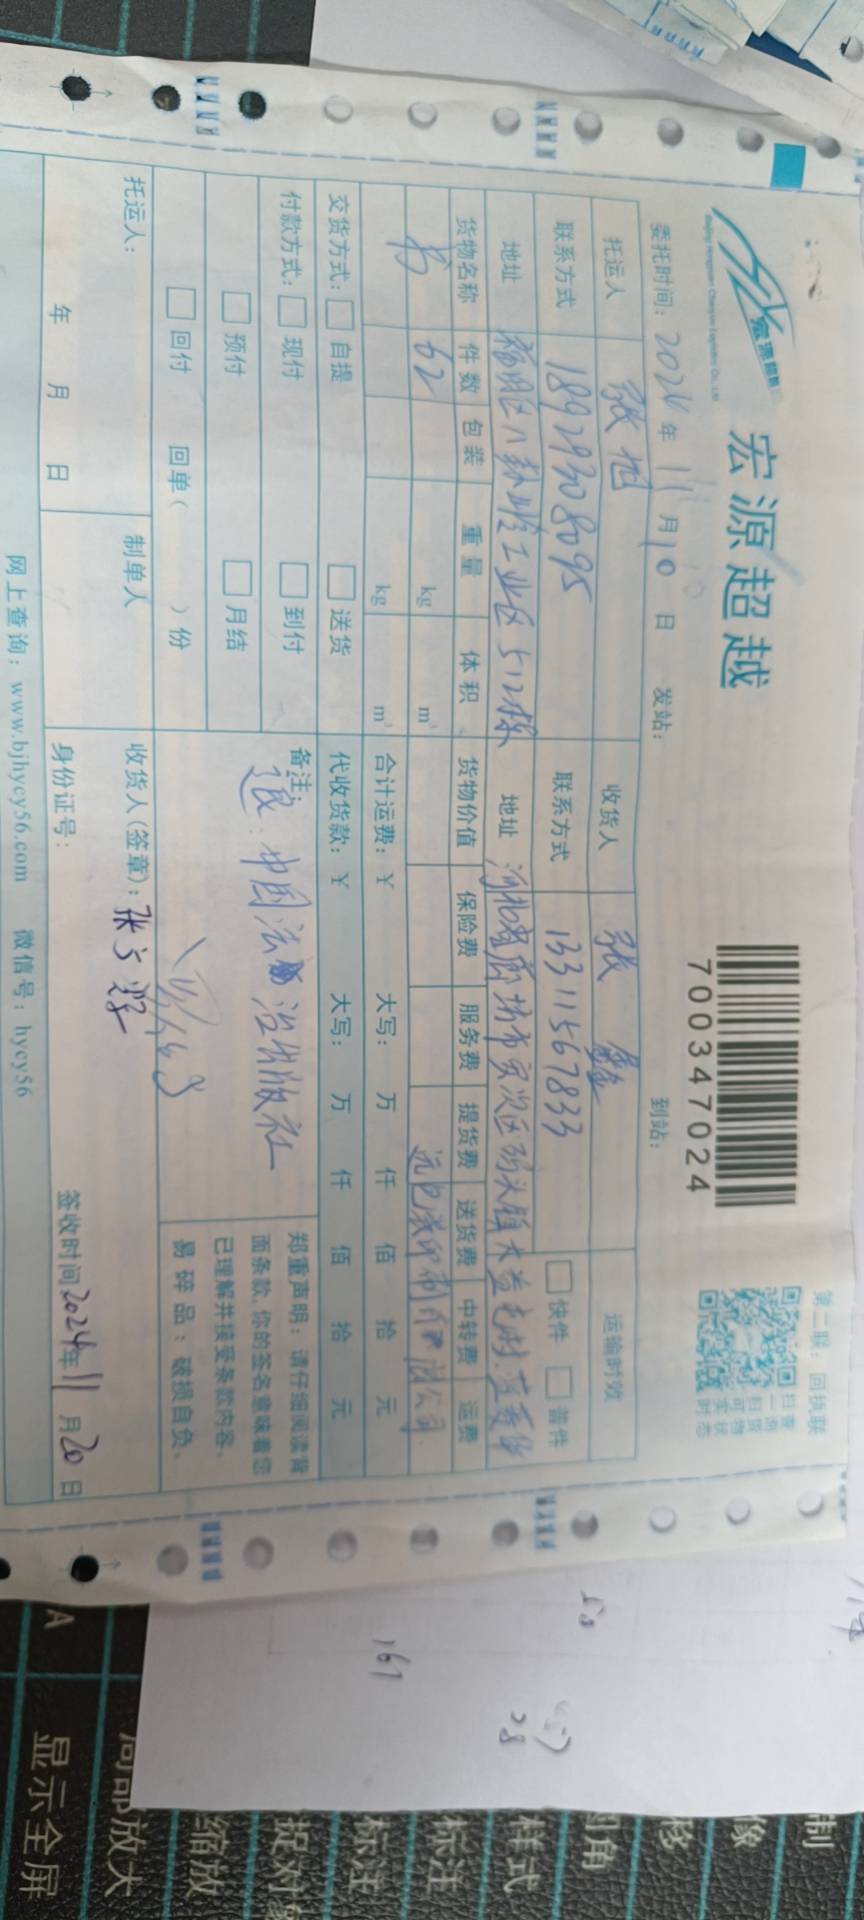 宏源超越
宏源超越
7 0 0 3 4 7 0 2 4
第二联：回执联
委托时间：2024年11月10日 发站： 到站：
托运人 张旭 收货人 张鑫 运输时效
联系方式 18929308095 联系方式 13311567833 快件 普件
地址 福田区八卦岭工业区512栋 地址 河北省廊坊市安次区码头镇大益屯村
货物名称 件数 包装 重量 体积 货物价值 保险费 服务费 提货费 送货费 中转费 运费
书 62 kg m³ 印刷有限公司
kg m³ 合计运费：¥ 大写： 万 仟 佰 拾 元
交货方式： 自提 送货 代收货款：¥ 大写： 万 仟 佰 拾 元
付款方式： 现付 到付 备注：
预付 月结 退：中国法治出版社
回付 回单（ ）份
郑重声明：请仔细阅读背
面条款,你的签名意味着您
已理解并接受条款内容。
易碎品：破损自负。
托运人： 制单人 收货人（签章）：
年 月 日 身份证号： 签收时间2024年11月20日
网上查询：www.bjhycy56.com 微信号：hycy56
161
28
制
像
移
圆角
样式
标注
标注
捉对象
缩放
局部放大
显示全屏
A